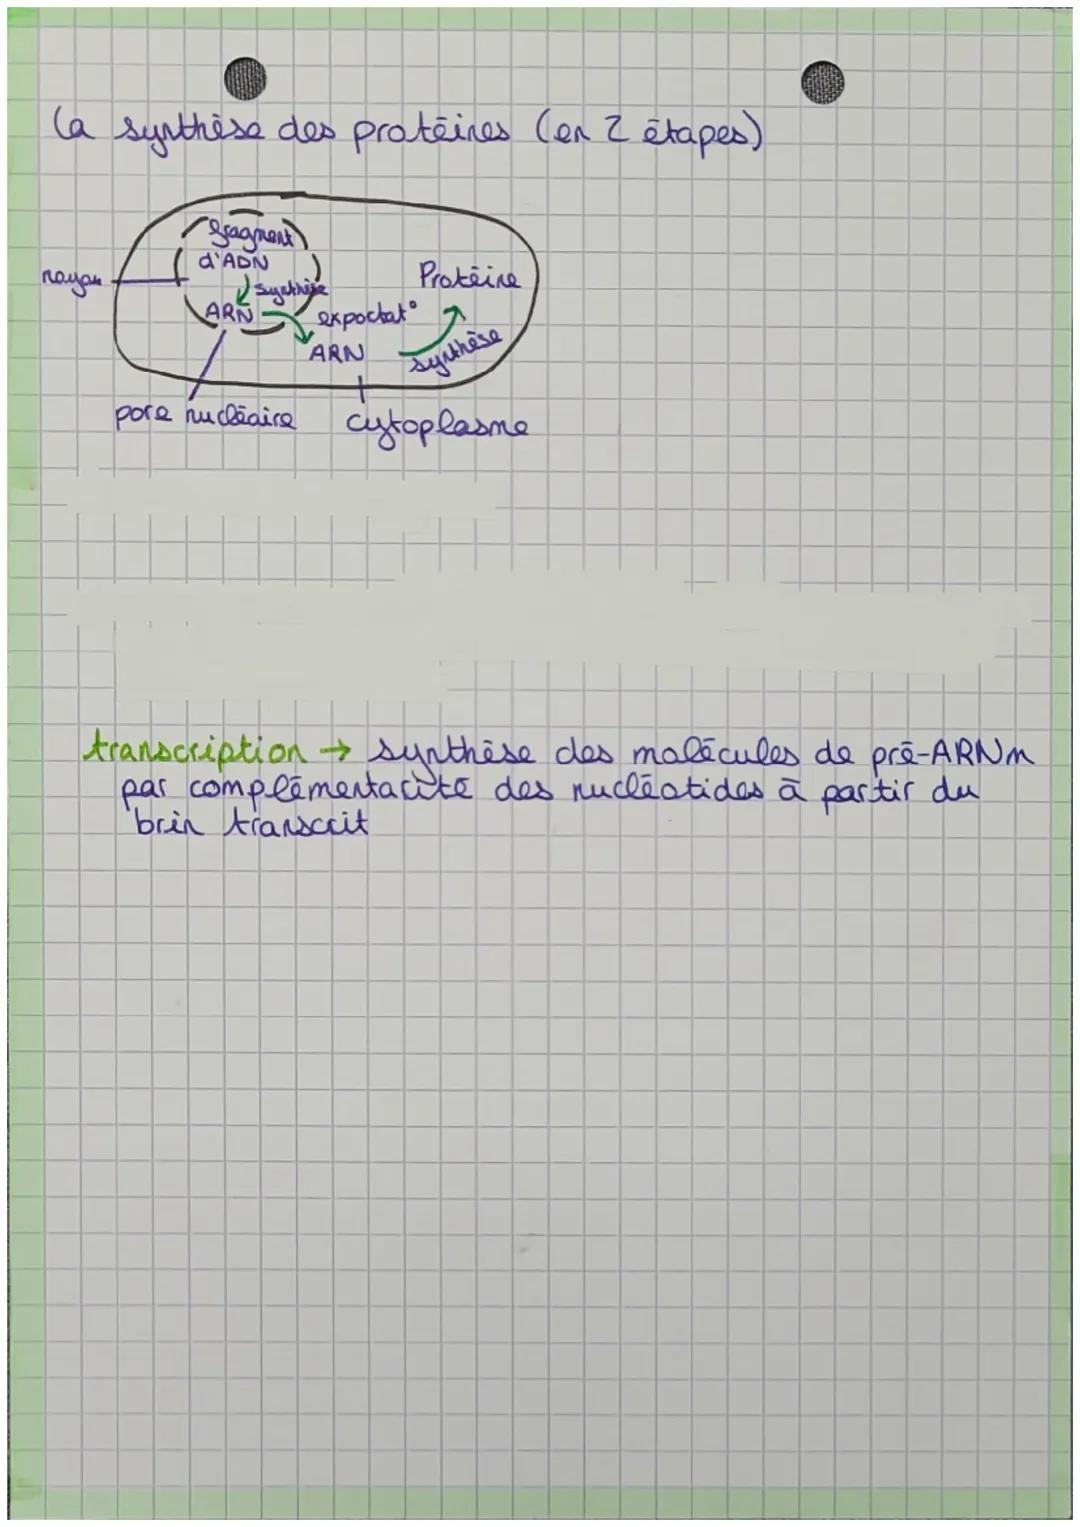 la synthèse des protéines (en 2 étapes)
fragment
d'ADN
noyau
synthèse
Protéine
ARN
exportat°
ARN
synthèse
pore nucléaire
cytoplasme
transcription → synthèse des molécules de pré-ARNm
par complémentarité des nucléotides à partir du
brin transcrit